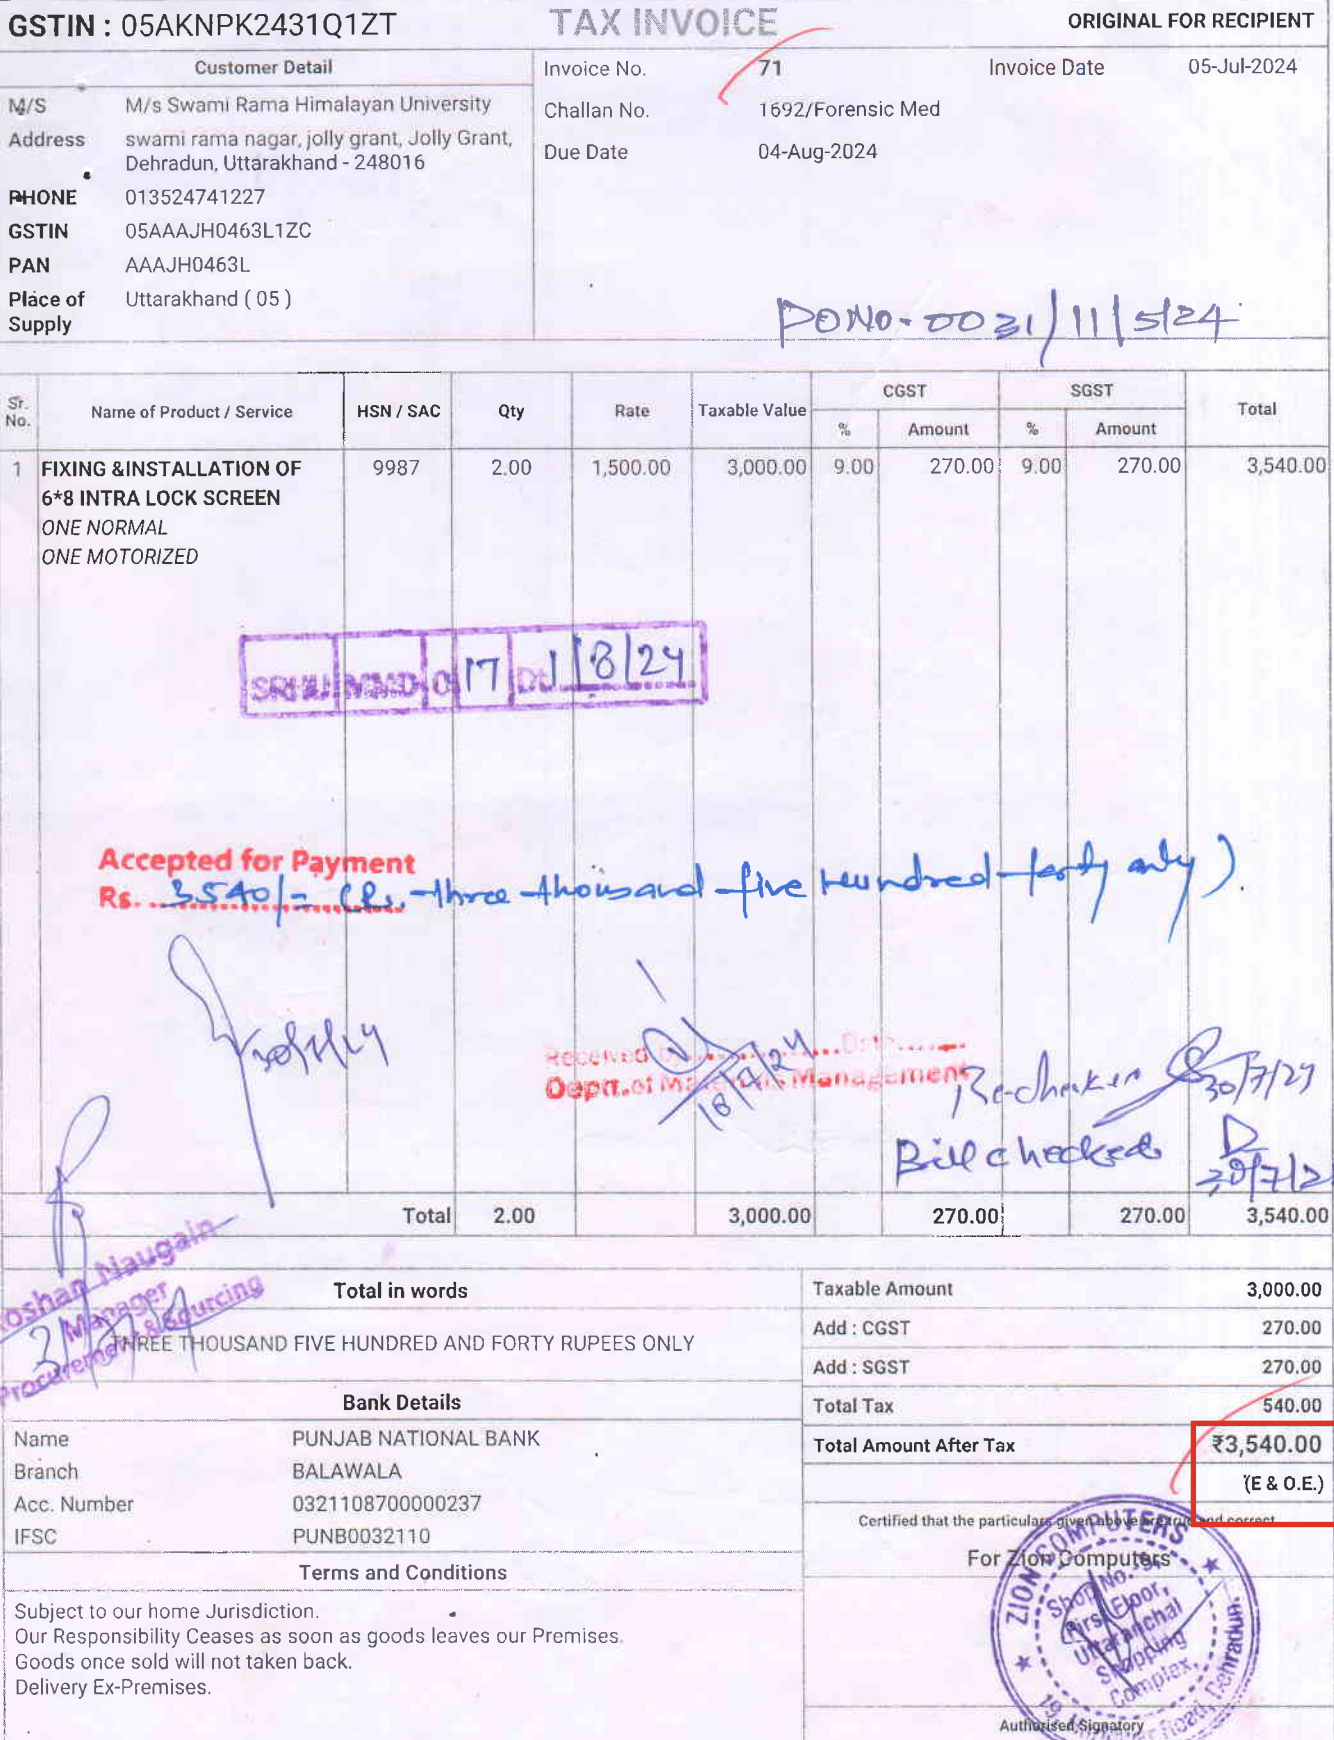 GSTIN : 05AKNPK2431Q1ZT TAX INVOICE ORIGINAL FOR RECIPIENT
Customer Detail
M/S M/s Swami Rama Himalayan University
Address swami rama nagar, jolly grant, Jolly Grant,
Dehradun, Uttarakhand - 248016
PHONE 013524741227
GSTIN 05AAAJH0463L1ZC
PAN AAAJH0463L
Place of Supply Uttarakhand ( 05 )
Invoice No. 71 Invoice Date 05-Jul-2024
Challan No. 1692/Forensic Med
Due Date 04-Aug-2024
PONO-0031/11/5/24
Sr. No. Name of Product / Service HSN / SAC Qty Rate Taxable Value CGST SGST Total
% Amount % Amount
1 FIXING &INSTALLATION OF 9987 2.00 1,500.00 3,000.00 9.00 270.00 9.00 270.00 3,540.00
6*8 INTRA LOCK SCREEN
ONE NORMAL
ONE MOTORIZED
SRHU MMD 17 Dt 1/8/24
Accepted for Payment
Rs. 3540/= (Rs. three thousand five hundred forty only).
Received Date
Deptt. of Materials Management
18/7/24
Re-checker 30/7/24
Bill checked 30/7/2
Total 2.00 3,000.00 270.00 270.00 3,540.00
Roshan Naugain
Manager
Procurement & Sourcing
Total in words
THREE THOUSAND FIVE HUNDRED AND FORTY RUPEES ONLY
Bank Details
Name PUNJAB NATIONAL BANK
Branch BALAWALA
Acc. Number 0321108700000237
IFSC PUNB0032110
Terms and Conditions
Subject to our home Jurisdiction.
Our Responsibility Ceases as soon as goods leaves our Premises.
Goods once sold will not taken back.
Delivery Ex-Premises.
Taxable Amount 3,000.00
Add : CGST 270.00
Add : SGST 270.00
Total Tax 540.00
Total Amount After Tax ₹3,540.00
(E & O.E.)
Certified that the particulars given above are true and correct
For Zion Computers
ZION COMPUTERS
Shop No.
First Floor,
Uttaranchal
Shopping
Complex,
Road, Dehradun.
Authorised Signatory